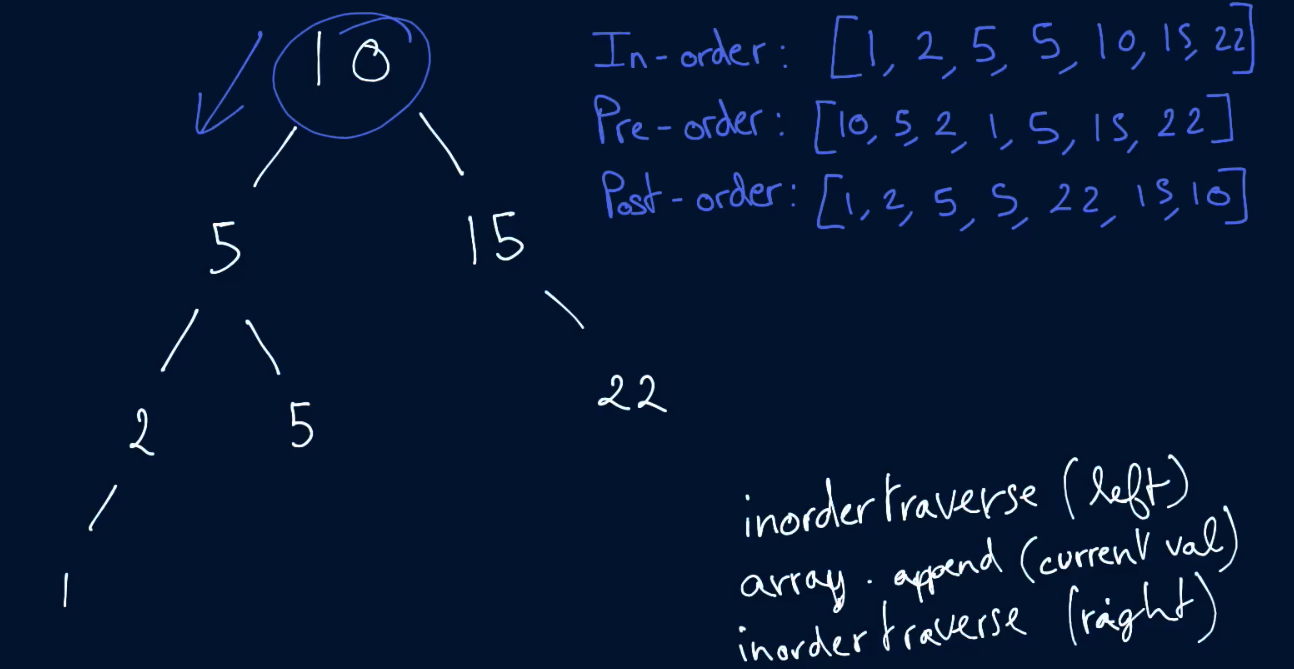 10
5 15
2 5 22
1
In-order: [1, 2, 5, 5, 10, 15, 22]
Pre-order: [10, 5, 2, 1, 5, 15, 22]
Post-order: [1, 2, 5, 5, 22, 15, 10]
inordertraverse (left)
array.append (current val)
inordertraverse (right)